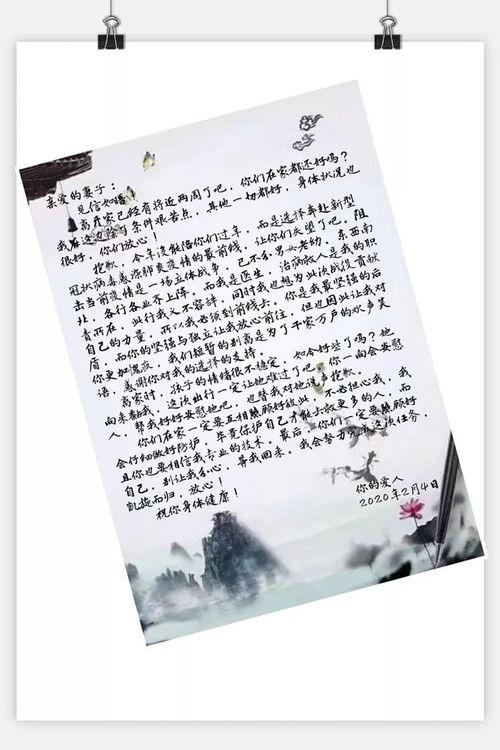 亲爱的妻子：
见信如晤！
离开家已经有将近两周了吧，你们在家都还好吗？
我在这边除了条件艰苦点，其他一切都好，身体状况也
很好，你们放心！
抱歉，今年没能陪你们过年，而是选择奔赴新型
冠状病毒感染肺炎疫情的最前线，让你们失望了吧。阻
击当前疫情是一场立体战争，已不分男女老幼、东西南
北，各行各业不上阵。而我是医生，治病救人是我的职
责所在，此行我义不容辞，同时我也想为此次战役贡献
自己的力量，所以我必须到前线去。你是我最坚强的后
盾，而你的坚强与独立让我放心前往，但也因此让我对
你更加愧疚，我们短暂的别离是为了千家万户的欢声笑
语，感谢你对我的选择的支持。
离家时，孩子的情绪很不稳定，如今好些了吗？她
向来黏我，这次出行一定让她难过了吧。你一向会安慰
人，帮我好好安慰她吧，也替我对她说声抱歉。
你们在家一定要互相照顾好彼此，不必担心我，我
会仔细做好防护，毕竟保护自己才能去救更多的人，而
且你也要相信我专业的技术，最后，你们一定要照顾好
自己，别让我分心，等我回来，我会努力完成这次任务，
凯旋而归，放心！
祝你身体健康！
你的爱人
2020年2月4日